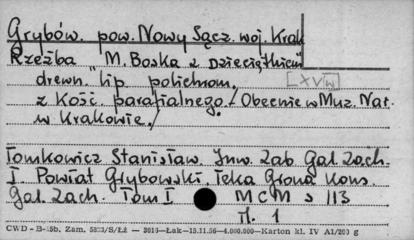 Grybów. pow. Nowy Sącz. woj. Krak
Rzeźba "M. Boska z Dzieciątkiem
drewn. lip. polichrom. [XV w]
z kośc. parafialnego. /Obecnie w Muz. Nar.
w Krakowie./
Tomkowicz Stanisław. Inw. Zab. Gal. Zach.
I Powiat Grybowski. Teka Grona Kons.
Gal. Zach. Tom I MCM s 113
il. 1
CWD - B-15b. Zam. 5823/S/Łź — 3010—Łak—13.11.56—4.000.000—Karton kl. IV A1/200 g